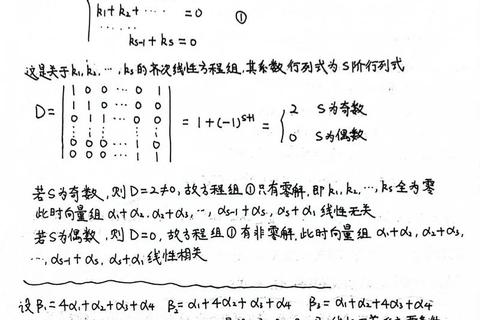 k₁+k₂+⋯⋯ =0 ①
⋯⋯
kₛ₋₁+kₛ=0
这是关于k₁,k₂,⋯,kₛ的齐次线性方程组,其系数行列式为S阶行列式
D=
1 0 0 ⋯ 0 1
1 1 0 ⋯ 0 0
0 1 1 ⋯ 0 0
⋮ ⋮ ⋮ ⋮ ⋮
0 0 0 ⋯ 1 0
0 0 0 ⋯ 1 1
= 1+(-1)ˢ⁺¹ =
2 S为奇数
0 S为偶数
若S为奇数,则D=2≠0,故方程组①只有零解,即k₁,k₂,⋯,kₛ全为零
此时向量组α₁+α₂,α₂+α₃,⋯,αₛ₋₁+αₛ,αₛ+α₁线性无关
若S为偶数,则D=0,故方程组①有非零解,此时向量组α₁+α₂,α₂+α₃,
⋯,αₛ₋₁+αₛ,αₛ+α₁线性相关
设β₁=4α₁+α₂+α₃+α₄ β₂=α₁+4α₂+α₃+α₄ β₃=α₁+α₂+4α₃+α₄